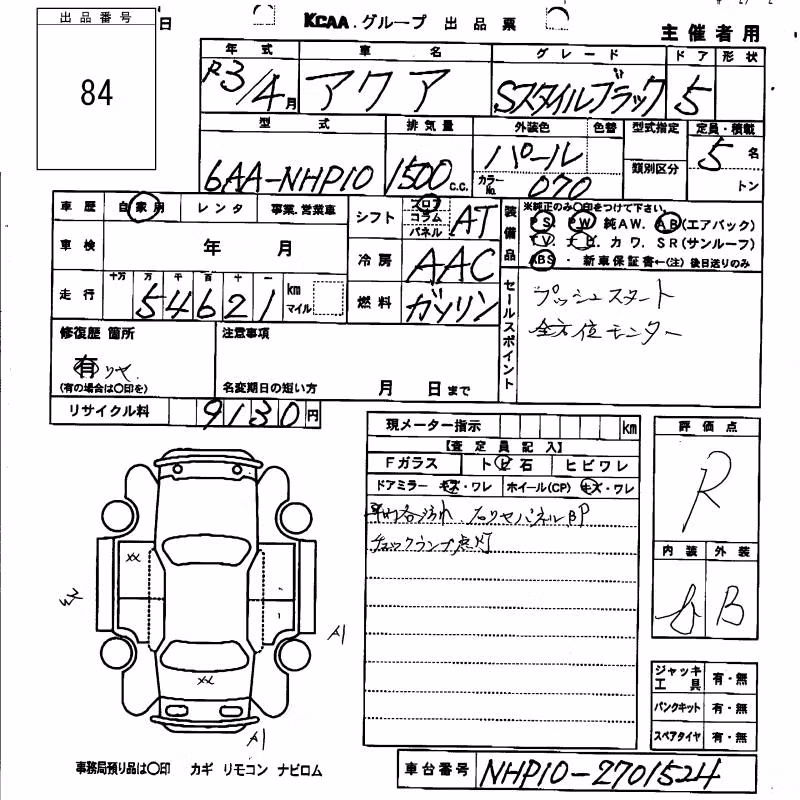 出品番号
84
日
KCAA.グループ 出品票
主催者用
年式 車名 グレード ドア 形状
R3/4月 アクア Sスタイルブラック 5
型式 排気量 外装色 色替 型式指定 定員・積載
6AA-NHP10 1500 c.c. パール 5名
カラーNo. 070 類別区分 トン
車歴 自家用 レンタ 事業.営業車
シフト フロア コラム パネル AT
装備品 ※純正のみ〇印をつけて下さい。
PS. PW 純AW. AB(エアバック)
TV. ナビ. カワ. SR(サンルーフ)
ABS ・ 新車保証書←(注)後日送りのみ
車検 年 月
冷房 AAC
走行 十万 万 千 百 十 一
54621 km マイル
燃料 ガソリン
セールスポイント
プッシュスタート
全方位モニター
修復歴 箇所 注意事項
有 リヤ
(有の場合は〇印を) 名変期日の短い方 月 日まで
リサイクル料 9130円
現メーター指示 km
【査定員記入】
Fガラス トビ石 ヒビワレ
ドアミラー キズ・ワレ ホイール(CP) キズ・ワレ
車内各汚れ 右リヤパネルBP
チェックランプ点灯
評価点
R
内装 外装
B
XX
A1
XX
A1
ジャッキ工具 有・無
パンクキット 有・無
スペアタイヤ 有・無
事務局預り品は〇印 カギ リモコン ナビロム
車台番号 NHP10-2701524